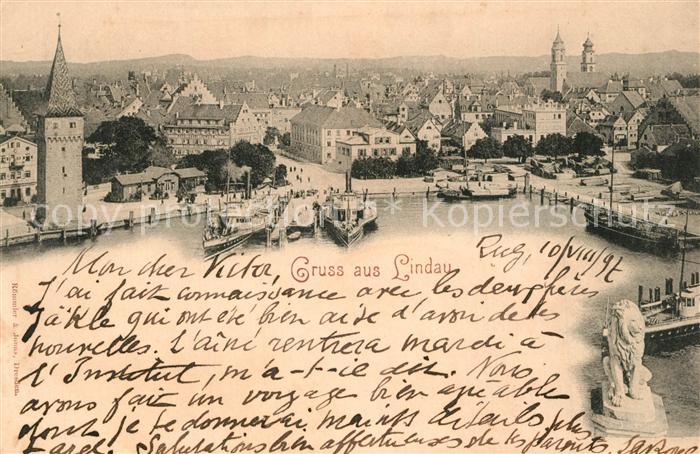 copyright oldthing.de
Gruss aus Lindau
Römmler & Jonas, Dresden
10/VIII/97
Mon cher Victor,
J'ai fait connaissance avec les deux frères
qui ont été bien aise d'avoir de tes
nouvelles. L'aîné rentrera mardi à
l'Institut, m'a-t-il dit. Nous
avons fait un voyage bien agréable
dont je te donnerai maints détails plus
tard. Salutations bien affectueuses de tes parents.